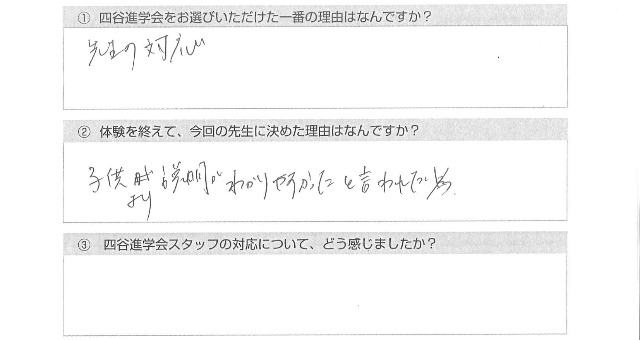 ① 四谷進学会をお選びいただけた一番の理由はなんですか？
先生の対応
② 体験を終えて、今回の先生に決めた理由はなんですか？
子供より説明がわかりやすかったと言われた為
③ 四谷進学会スタッフの対応について、どう感じましたか？